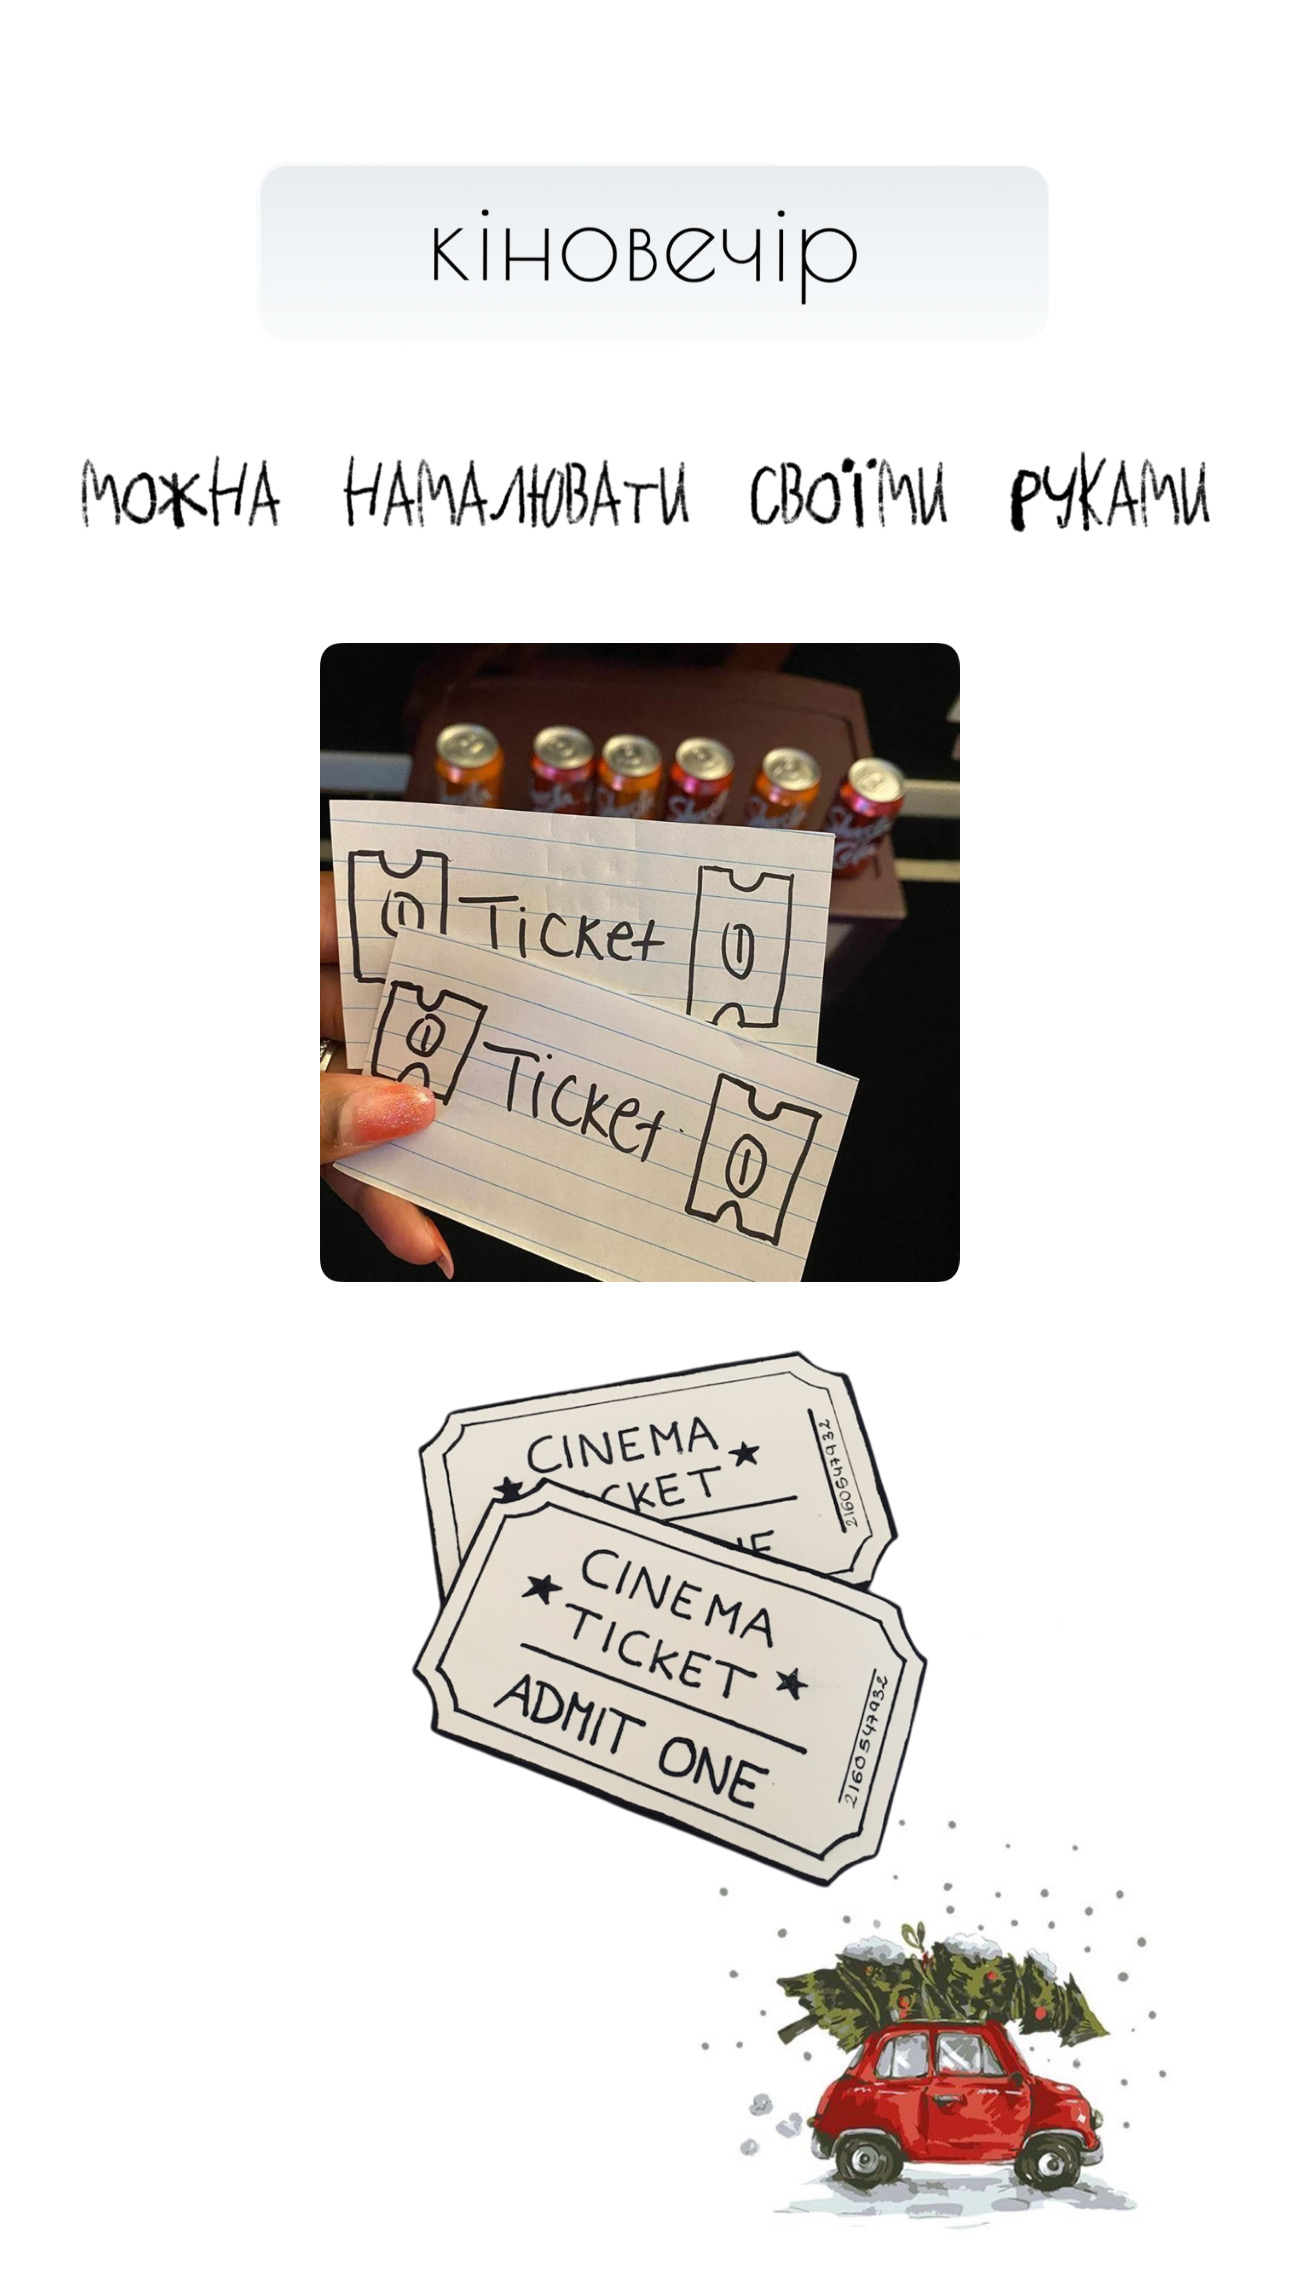 кіновечір
можна намалювати своїми руками
Ticket
Ticket
CINEMA
CKET
2160547932
CINEMA
TICKET
ADMIT ONE
2160547932